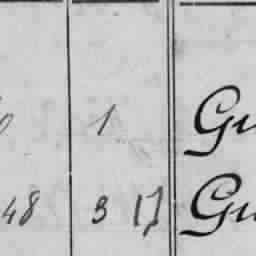 1 Gu
48 3 17 Gu